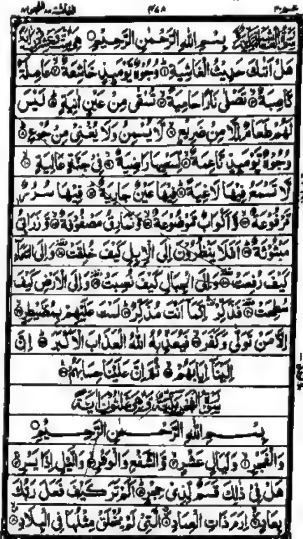 بِسْمِ اللهِ الرَّحْمٰنِ الرَّحِيْمِ
هَلْ اَتٰىكَ حَدِيْثُ الْغَاشِيَةِ وُجُوْهٌ يَّوْمَئِذٍ خَاشِعَةٌ عَامِلَةٌ
نَّاصِبَةٌ تَصْلٰى نَارًا حَامِيَةً تُسْقٰى مِنْ عَيْنٍ اٰنِيَةٍ لَيْسَ
لَهُمْ طَعَامٌ اِلَّا مِنْ ضَرِيْعٍ لَّا يُسْمِنُ وَلَا يُغْنِيْ مِنْ جُوْعٍ
وُجُوْهٌ يَّوْمَئِذٍ نَّاعِمَةٌ لِّسَعْيِهَا رَاضِيَةٌ فِيْ جَنَّةٍ عَالِيَةٍ
لَّا تَسْمَعُ فِيْهَا لَاغِيَةً فِيْهَا عَيْنٌ جَارِيَةٌ فِيْهَا سُرُرٌ
مَّرْفُوْعَةٌ وَّاَكْوَابٌ مَّوْضُوْعَةٌ وَّنَمَارِقُ مَصْفُوْفَةٌ وَّزَرَابِيُّ
مَبْثُوْثَةٌ اَفَلَا يَنْظُرُوْنَ اِلَى الْاِبِلِ كَيْفَ خُلِقَتْ وَاِلَى السَّمَآءِ
كَيْفَ رُفِعَتْ وَاِلَى الْجِبَالِ كَيْفَ نُصِبَتْ وَاِلَى الْاَرْضِ كَيْفَ
سُطِحَتْ فَذَكِّرْ اِنَّمَآ اَنْتَ مُذَكِّرٌ لَسْتَ عَلَيْهِمْ بِمُصَيْطِرٍ
اِلَّا مَنْ تَوَلّٰى وَكَفَرَ فَيُعَذِّبُهُ اللهُ الْعَذَابَ الْاَكْبَرَ اِنَّ
اِلَيْنَآ اِيَابَهُمْ ثُمَّ اِنَّ عَلَيْنَا حِسَابَهُمْ
بِسْمِ اللهِ الرَّحْمٰنِ الرَّحِيْمِ
وَالْفَجْرِ وَلَيَالٍ عَشْرٍ وَّالشَّفْعِ وَالْوَتْرِ وَالَّيْلِ اِذَا يَسْرِ
هَلْ فِيْ ذٰلِكَ قَسَمٌ لِّذِيْ حِجْرٍ اَلَمْ تَرَ كَيْفَ فَعَلَ رَبُّكَ
بِعَادٍ اِرَمَ ذَاتِ الْعِمَادِ الَّتِيْ لَمْ يُخْلَقْ مِثْلُهَا فِي الْبِلَادِ